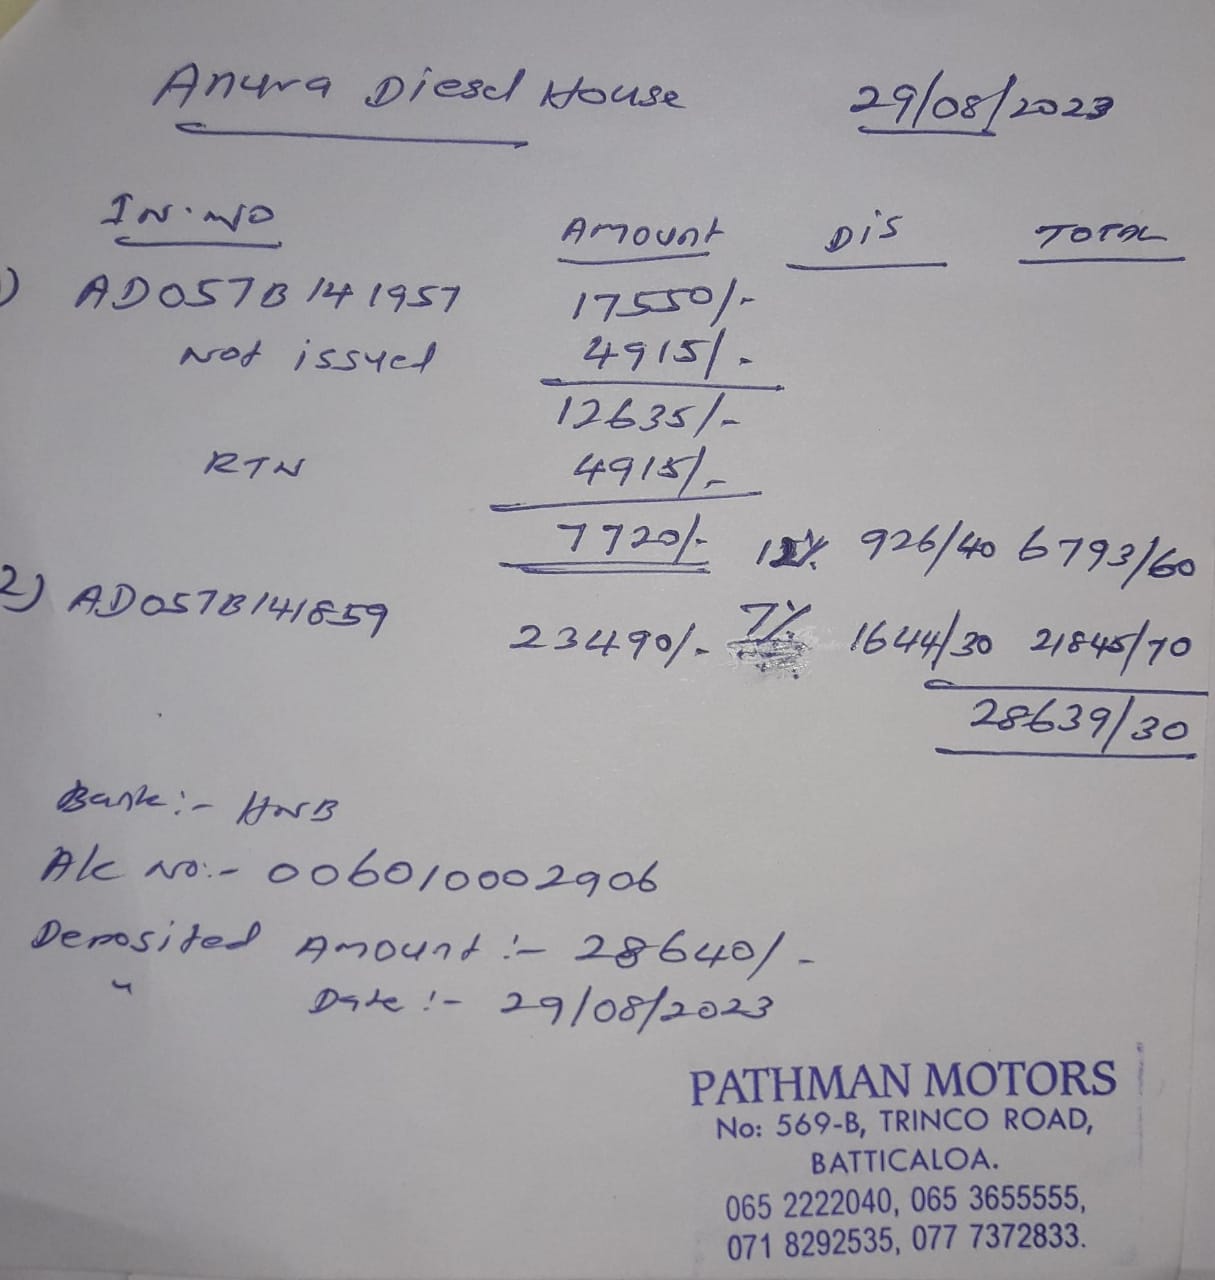 Anura Diesel House 29/08/2023
IN.NO Amount DIS TOTAL
1) AD057B141957 17550/-
Not issued 4915/-
12635/-
RTN 4915/-
7720/- 12% 926/40 6793/60
2) AD057B141859 23490/- 7% 1644/30 21845/70
28639/30
Bank:- HNB
A/c No:- 006010002906
Deposited Amount:- 28640/-
" Date:- 29/08/2023
PATHMAN MOTORS
No: 569-B, TRINCO ROAD,
BATTICALOA.
065 2222040, 065 3655555,
071 8292535, 077 7372833.